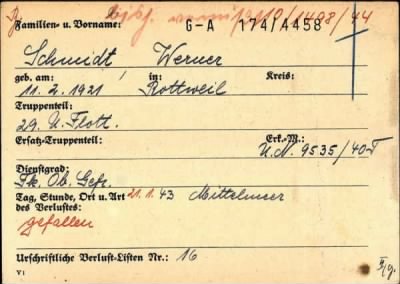 Familien- u. Vorname: G-A 174/4458
Schmidt Werner
geb. am: in: Kreis:
11. 2. 1921 Rottweil
Truppenteil:
29. U. Flott.
Ersatz-Truppenteil: Erk.-M.:
U.N. 9535/40 T
Dienstgrad:
Fk. Ob. Gefr.
Tag, Stunde, Ort u. Art 21.1.43 Mittelmeer
des Verlustes:
gefallen
Urschriftliche Verlust-Listen Nr.: 16
V1